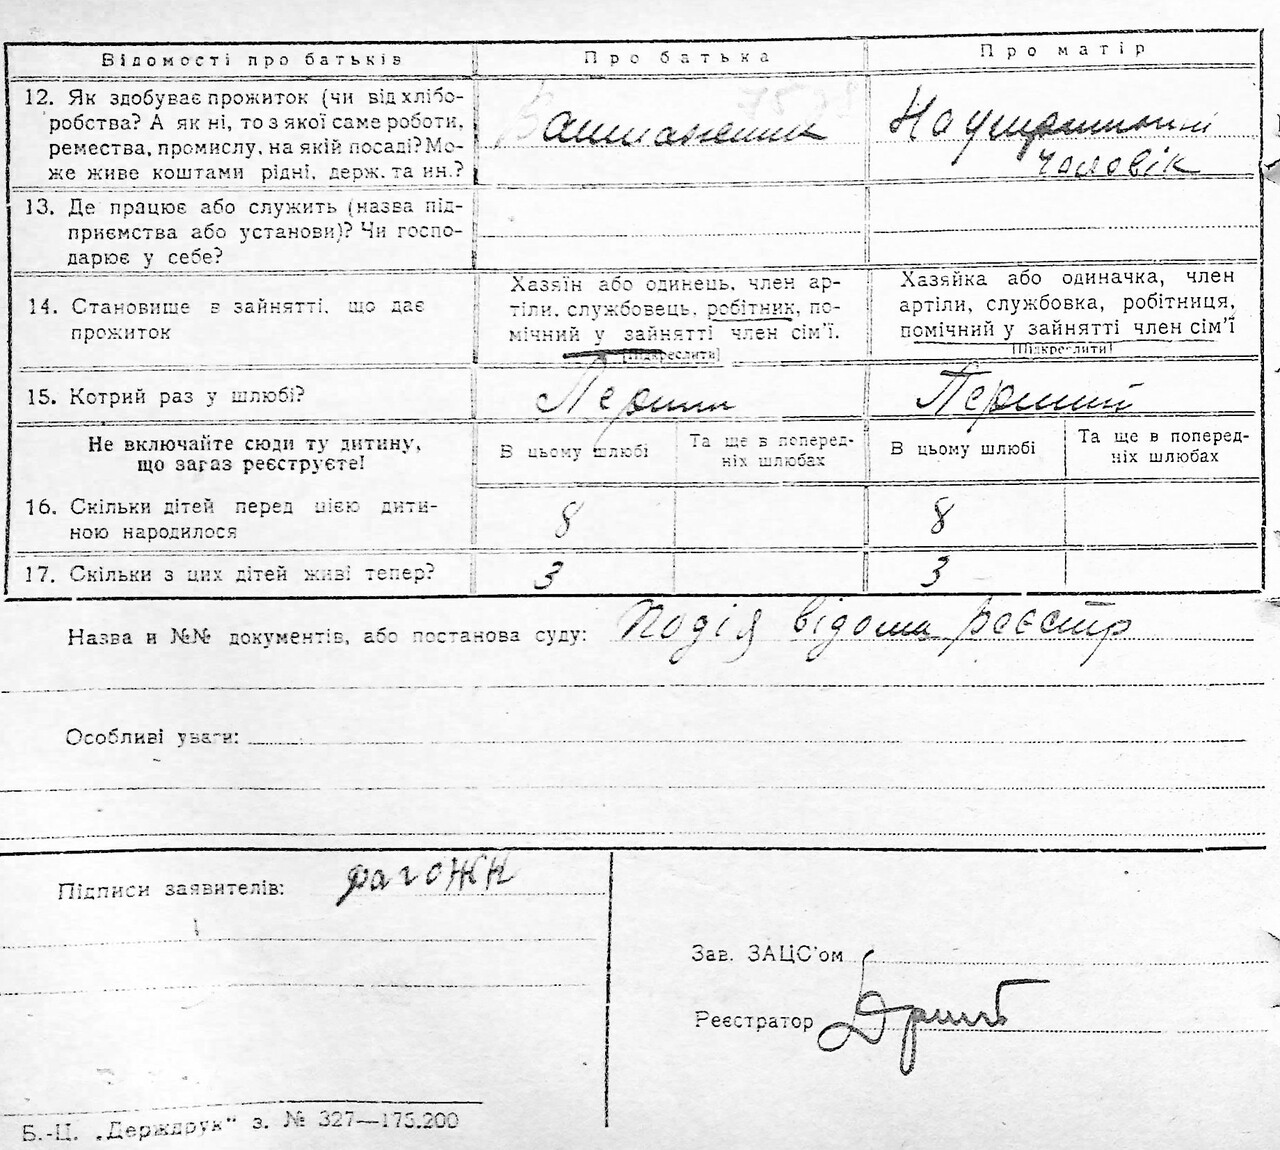 Відомості про батьків
Про батька
Про матір
12. Як здобуває прожиток (чи від хлібо-
робства? А як ні, то з якої саме роботи,
ремества, промислу, на якій посаді? Мо-
же живе коштами рідні, держ. та ин.?
На утриманні
чоловік
13. Де працює або служить (назва під-
приємства або установи)? Чи госпо-
дарює у себе?
14. Становише в зайнятті, що дає
прожиток
Хазяїн або одинець, член ар-
тіли, службовець, робітник, по-
мічний у зайнятті член сім'ї.
[Підкреслити]
Хазяйка або одиначка, член
артіли, службовка, робітниця,
помічний у зайнятті член сім'ї
[Підкреслити]
15. Котрий раз у шлюбі?
Перший
Перший
Не включайте сюди ту дитину,
що зараз реєструєте!
В цьому шлюбі
Та ще в поперед-
ніх шлюбах
В цьому шлюбі
Та ще в поперед-
ніх шлюбах
16. Скільки дітей перед цією дити-
ною народилося
8
8
17. Скільки з цих дітей живі тепер?
3
3
Назва и №№ документів, або постанова суду: Подія відома реєстр
Особливі уваги:
Підписи заявителів: рагожн
Зав. ЗАЦС'ом
Реєстратор
Б.-Ц. „Держдрук" з. № 327—175.200